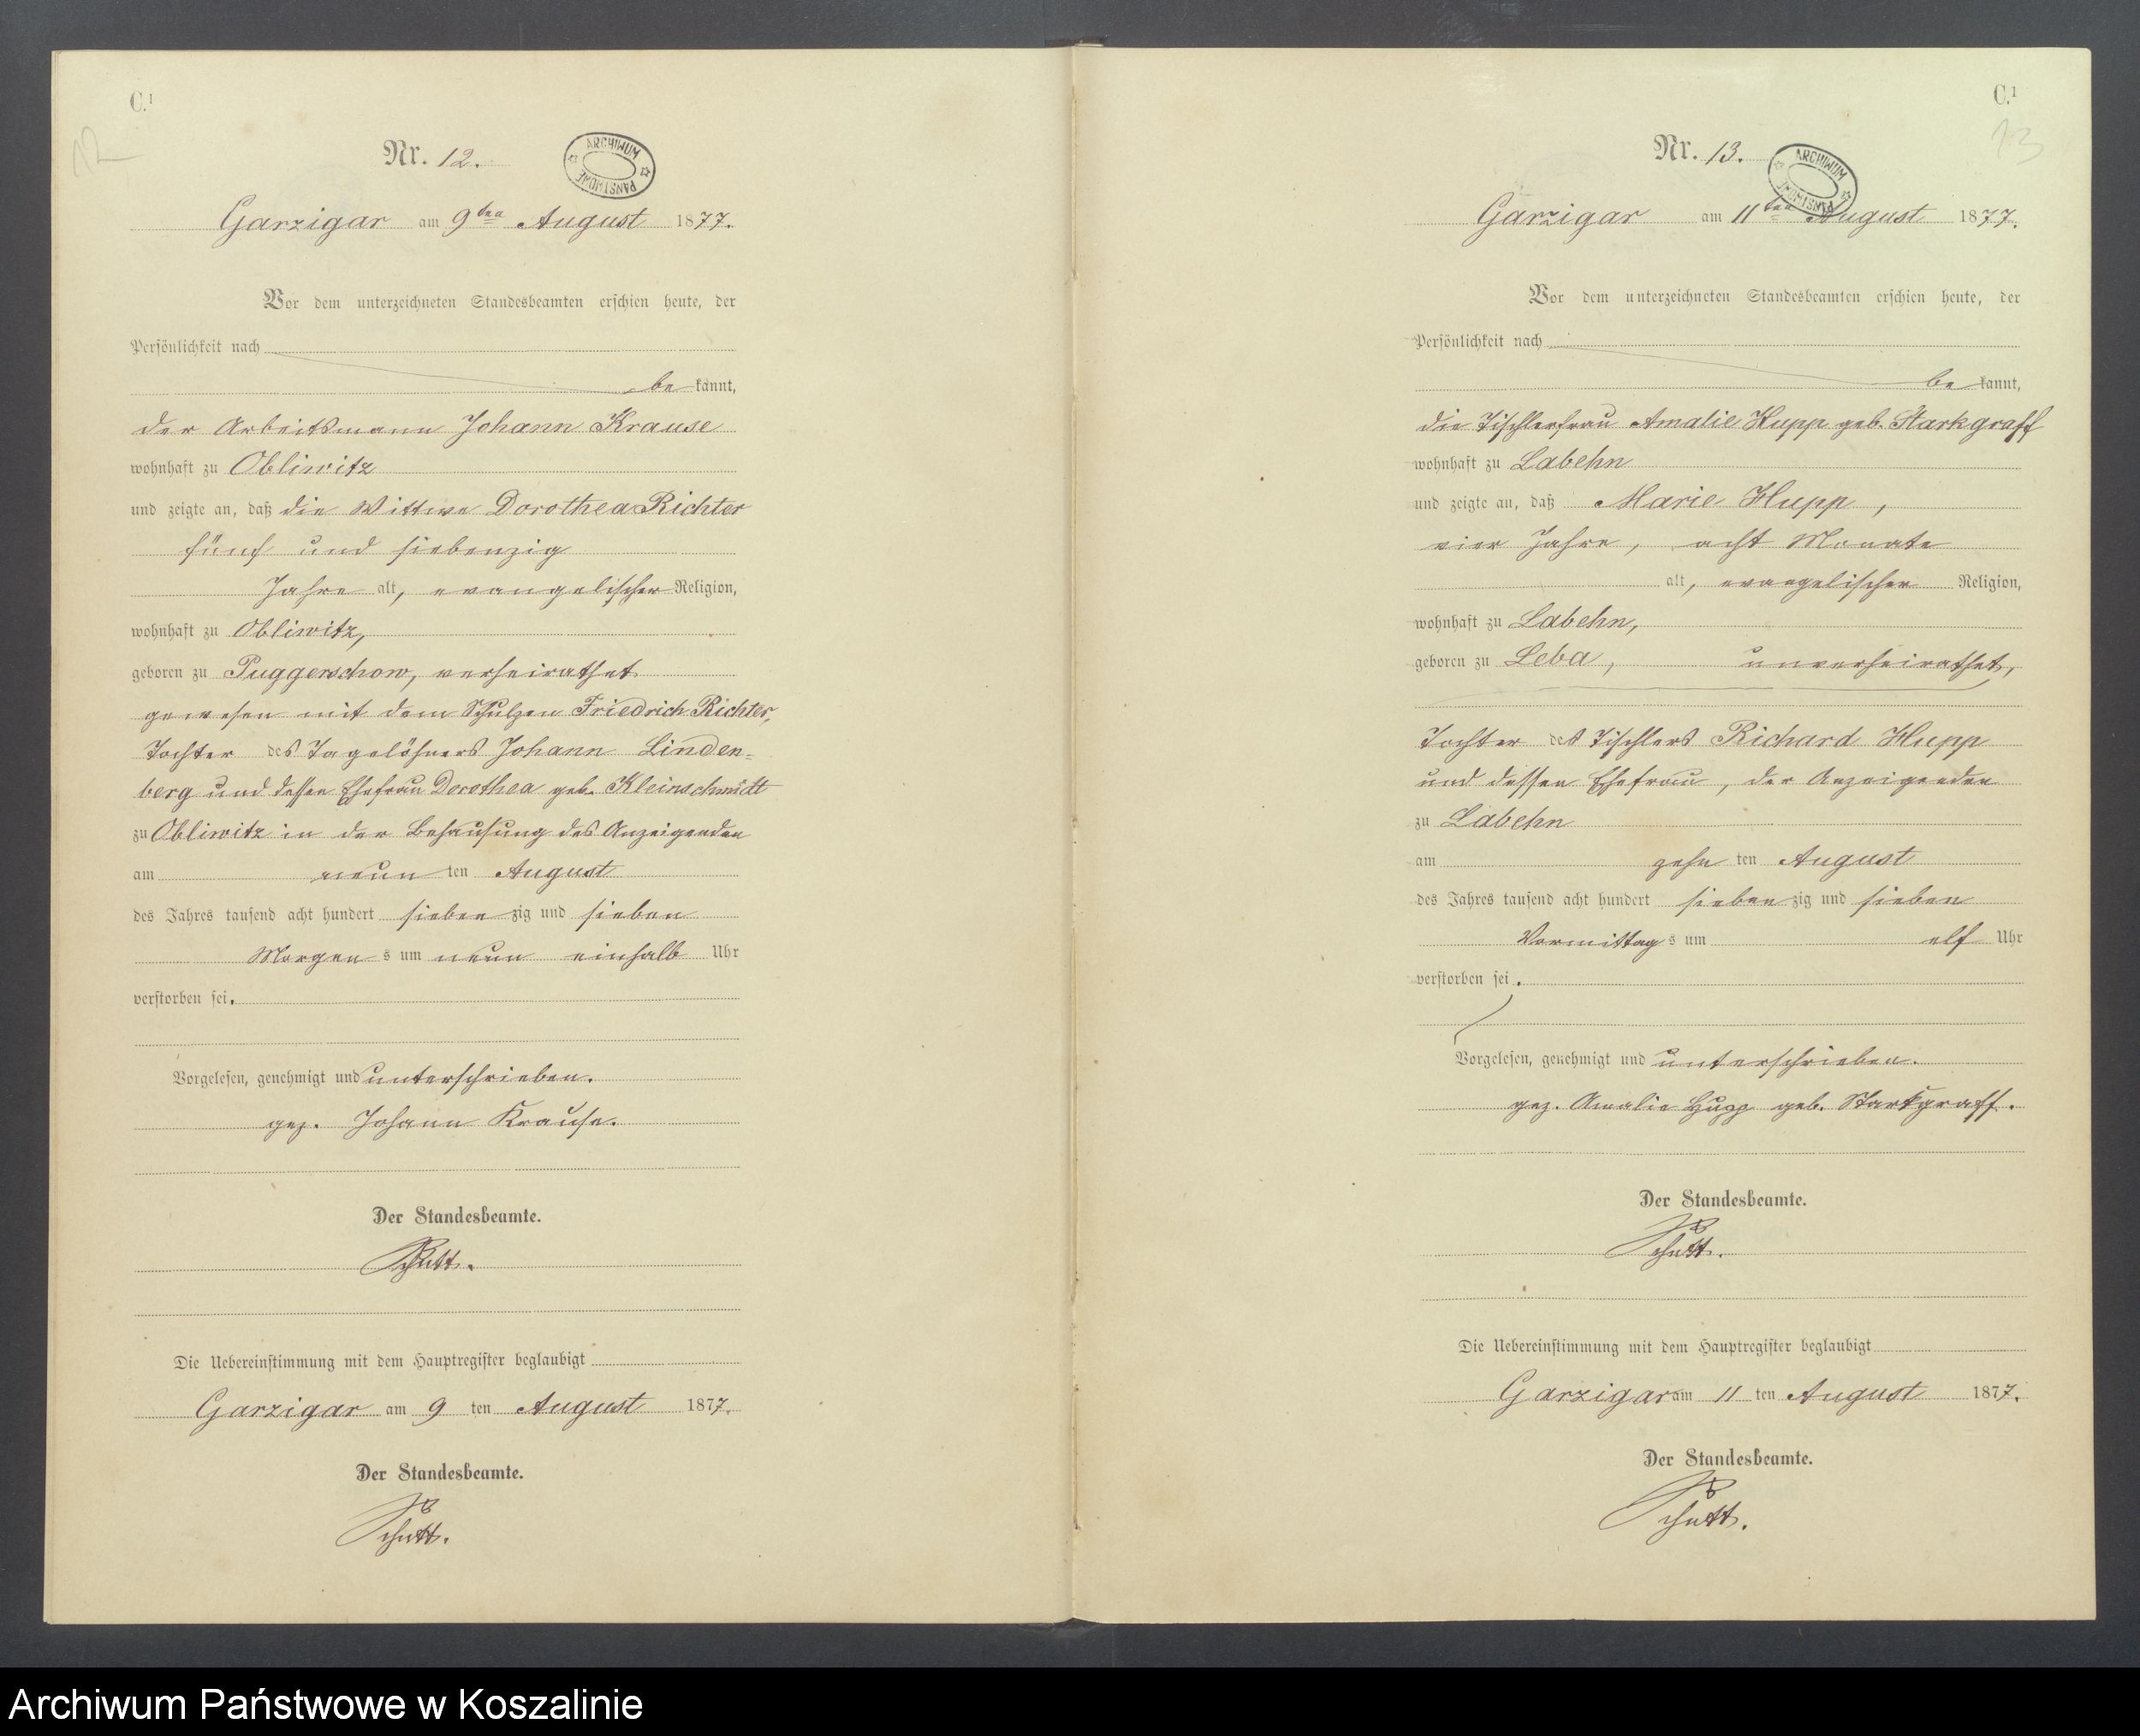 C.1
12
Nr. 12.
ARCHIWUM PAŃSTWOWE
Garzigar am 9ten August 1877.
Vor dem unterzeichneten Standesbeamten erschien heute, der
Persönlichkeit nach
be kannt,
der Arbeitsmann Johann Krause
wohnhaft zu Obliwitz
und zeigte an, daß die Wittwe Dorothea Richter
fünf und siebenzig
Jahre alt, evangelischer Religion,
wohnhaft zu Obliwitz,
geboren zu Puggerschow, verheirathet
gewesen mit dem Schulzen Friedrich Richter,
Tochter des Tagelöhners Johann Linden=
berg und dessen Ehefrau Dorothea geb. Kleinschmidt
zu Obliwitz in der Behausung des Anzeigenden
am neun ten August
des Jahres tausend acht hundert sieben zig und sieben
Morgen s um neun einhalb Uhr
verstorben sei.
Vorgelesen, genehmigt und unterschrieben.
gez. Johann Krause.
Der Standesbeamte.
Schutt.
Die Uebereinstimmung mit dem Hauptregister beglaubigt
Garzigar am 9 ten August 1877.
Der Standesbeamte.
Schutt.
C.1
13
Nr. 13.
ARCHIWUM PAŃSTWOWE
Garzigar am 11ten August 1877.
Vor dem unterzeichneten Standesbeamten erschien heute, der
Persönlichkeit nach
be kannt,
die Tischlerfrau Amalie Hupp geb. Starkgraff
wohnhaft zu Labehn
und zeigte an, daß Marie Hupp,
vier Jahre, acht Monate
alt, evangelischer Religion,
wohnhaft zu Labehn,
geboren zu Leba, unverheirathet,
Tochter des Tischlers Richard Hupp
und dessen Ehefrau, der Anzeigenden
zu Labehn
am zehn ten August
des Jahres tausend acht hundert sieben zig und sieben
Vormittag s um elf Uhr
verstorben sei.
Vorgelesen, genehmigt und unterschrieben.
gez. Amalie Hupp geb. Starkgraff.
Der Standesbeamte.
Schutt.
Die Uebereinstimmung mit dem Hauptregister beglaubigt
Garzigar am 11 ten August 1877.
Der Standesbeamte.
Schutt.
Archiwum Państwowe w Koszalinie